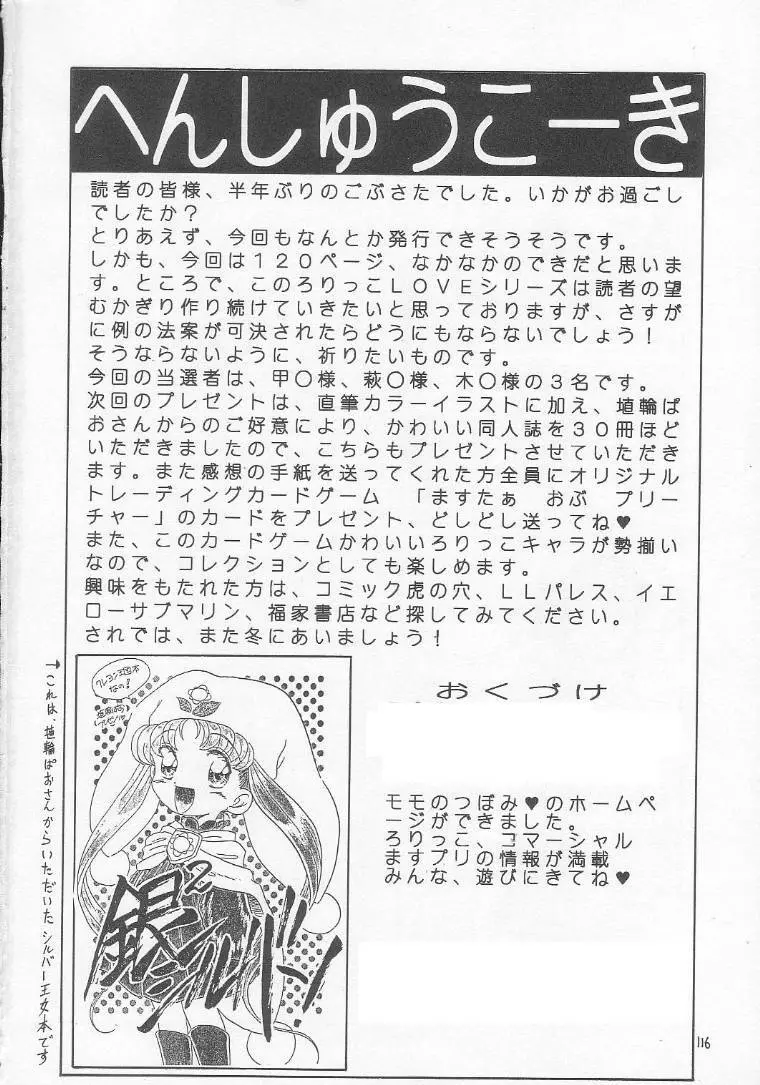 へんしゅうこーき
読者の皆様、半年ぶりのごぶさたでした。いかがお過ごし
でしたか?
とりあえず、今回もなんとか発行できそうそうです。
しかも、今回は120ページ、なかなかのできだと思いま
す。ところで、このろりっこLOVEシリーズは読者の望
むかぎり作り続けていきたいと思っておりますが、さすが
に例の法案が可決されたらどうにもならないでしょう!
そうならないように、祈りたいものです。
今回の当選者は、甲〇様、萩〇様、木〇様の3名です。
次回のプレゼントは、直筆カラーイラストに加え、埴輪ぱ
おさんからのご好意により、かわいい同人誌を30冊ほど
いただきましたので、こちらもプレゼントさせていただき
ます。また感想の手紙を送ってくれた方全員にオリジナル
トレーディングカードゲーム 「ますたぁ おぶ プリー
チャー」のカードをプレゼント、どしどし送ってね♥
また、このカードゲームかわいいろりっこキャラが勢揃い
なので、コレクションとしても楽しめます。
興味をもたれた方は、コミック虎の穴、LLパレス、イエ
ローサブマリン、福家書店など探してみてください。
されでは、また冬にあいましょう!
→これは、埴輪ぱおさんからいただいたシルバー王女本です
なの!
銀2
シルバー
おくづけ
モモのつぼみ♥のホームペ
ージができました。
ろりっこ、コマーシャル
ますプリの情報が満載
みんな、遊びにきてね♥
116